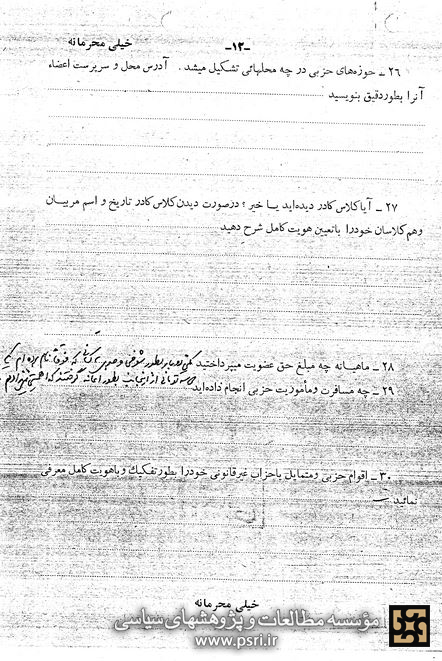 -۱۲-
خیلی محرمانه
۲۶ - حوزه‌های حزبی در چه محلهائی تشکیل میشد . آدرس محل و سرپرست اعضاء
آنرا بطور دقیق بنویسید
۲۷ - آیا کلاس کادر دیده‌اید یا خیر ؟ در صورت دیدن کلاس کادر تاریخ و اسم مربیان
وهم‌کلاسان خودرا باتعیین هویت کامل شرح دهید
۲۸ - ماهیانه چه مبلغ حق عضویت میپرداختید
۲۹ - چه مسافرت ومأموریت حزبی انجام داده‌اید
۳۰ - اقوام حزبی ومتمایل باحزاب غیرقانونی خودرا بطور تفکیک وباهویت کامل معرفی
نمائید
خیلی محرمانه
مؤسسه مطالعات و پژوهشهای سیاسی
www.psri.ir